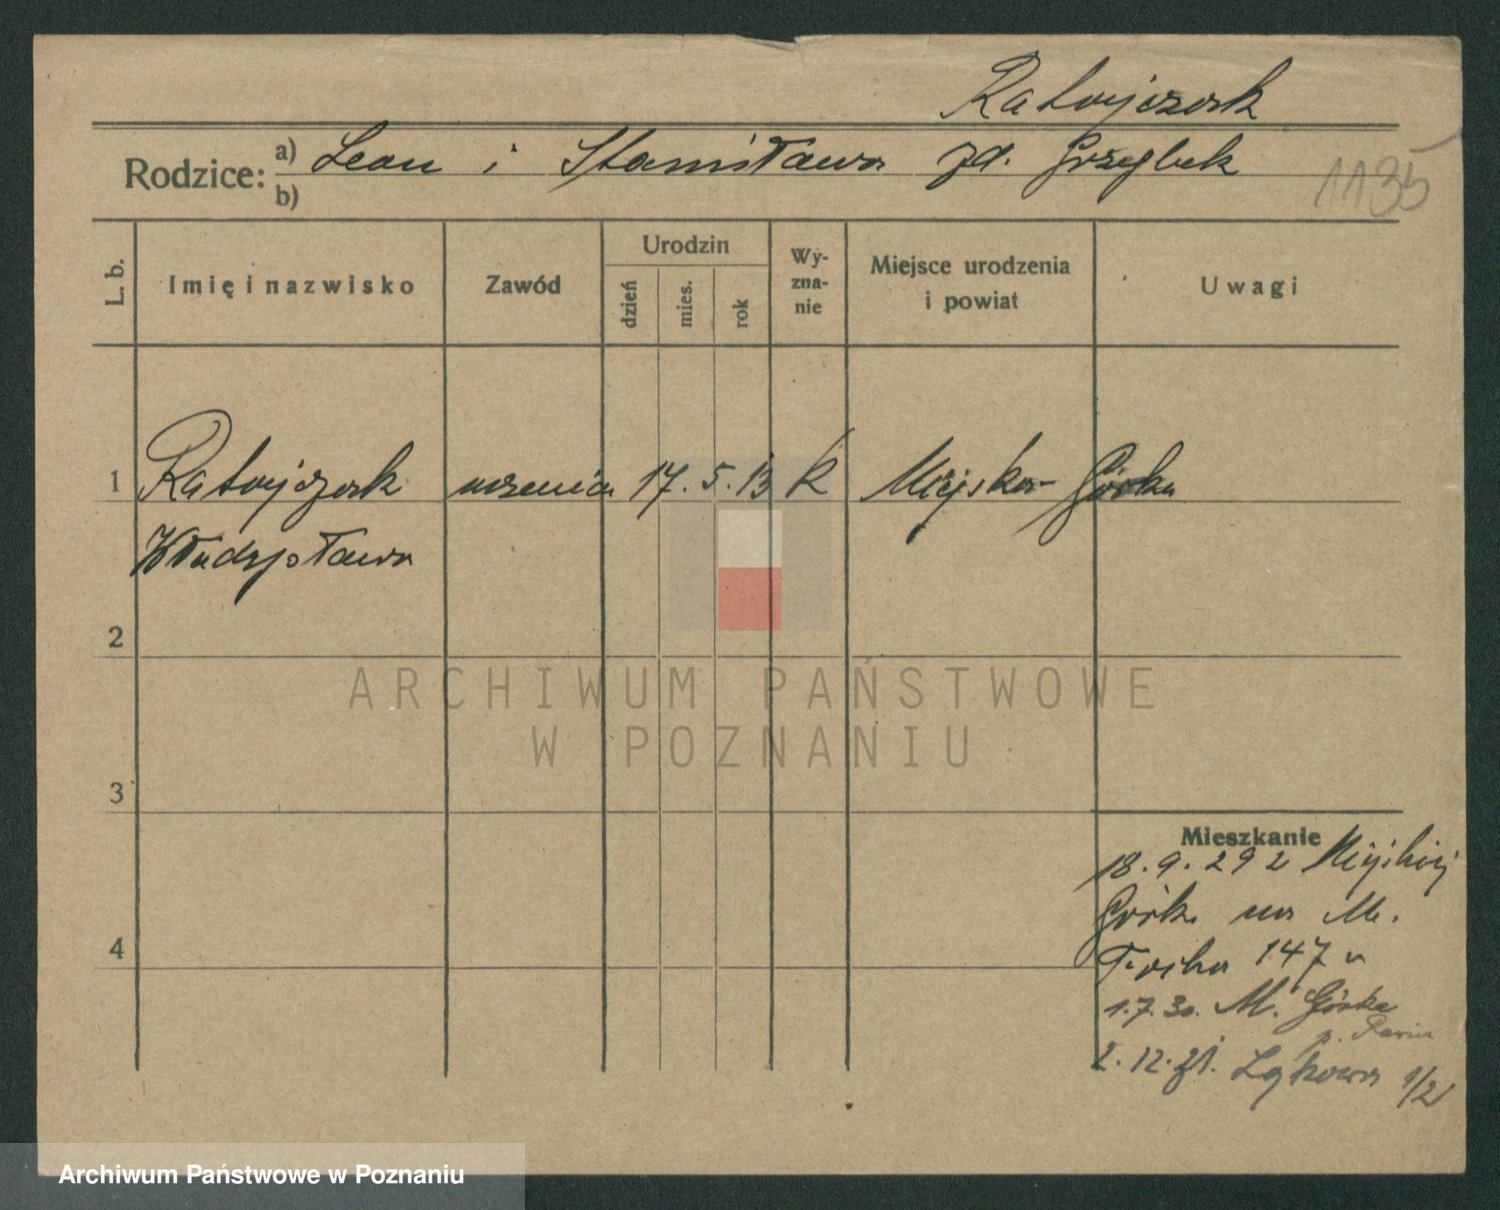 Ratajczak
Rodzice: a) Leon i Stanisława zd. Grzelak
b)
1135
L. b.
Imię i nazwisko
Zawód
Urodzin
dzień
mies.
rok
Wy-
zna-
nie
Miejsce urodzenia
i powiat
Uwagi
1 Ratajczak uczenica 17. 5. 13 k Miejska Górka
Władysława
2
3
4
Mieszkanie
18. 9. 29 z Miejskiej
Górki na M.
147 u
1. 7. 30. M. Górka
p. Rawicz
2. 12. 31. Łąkowa 1/2
ARCHIWUM PAŃSTWOWE
W POZNANIU
Archiwum Państwowe w Poznaniu